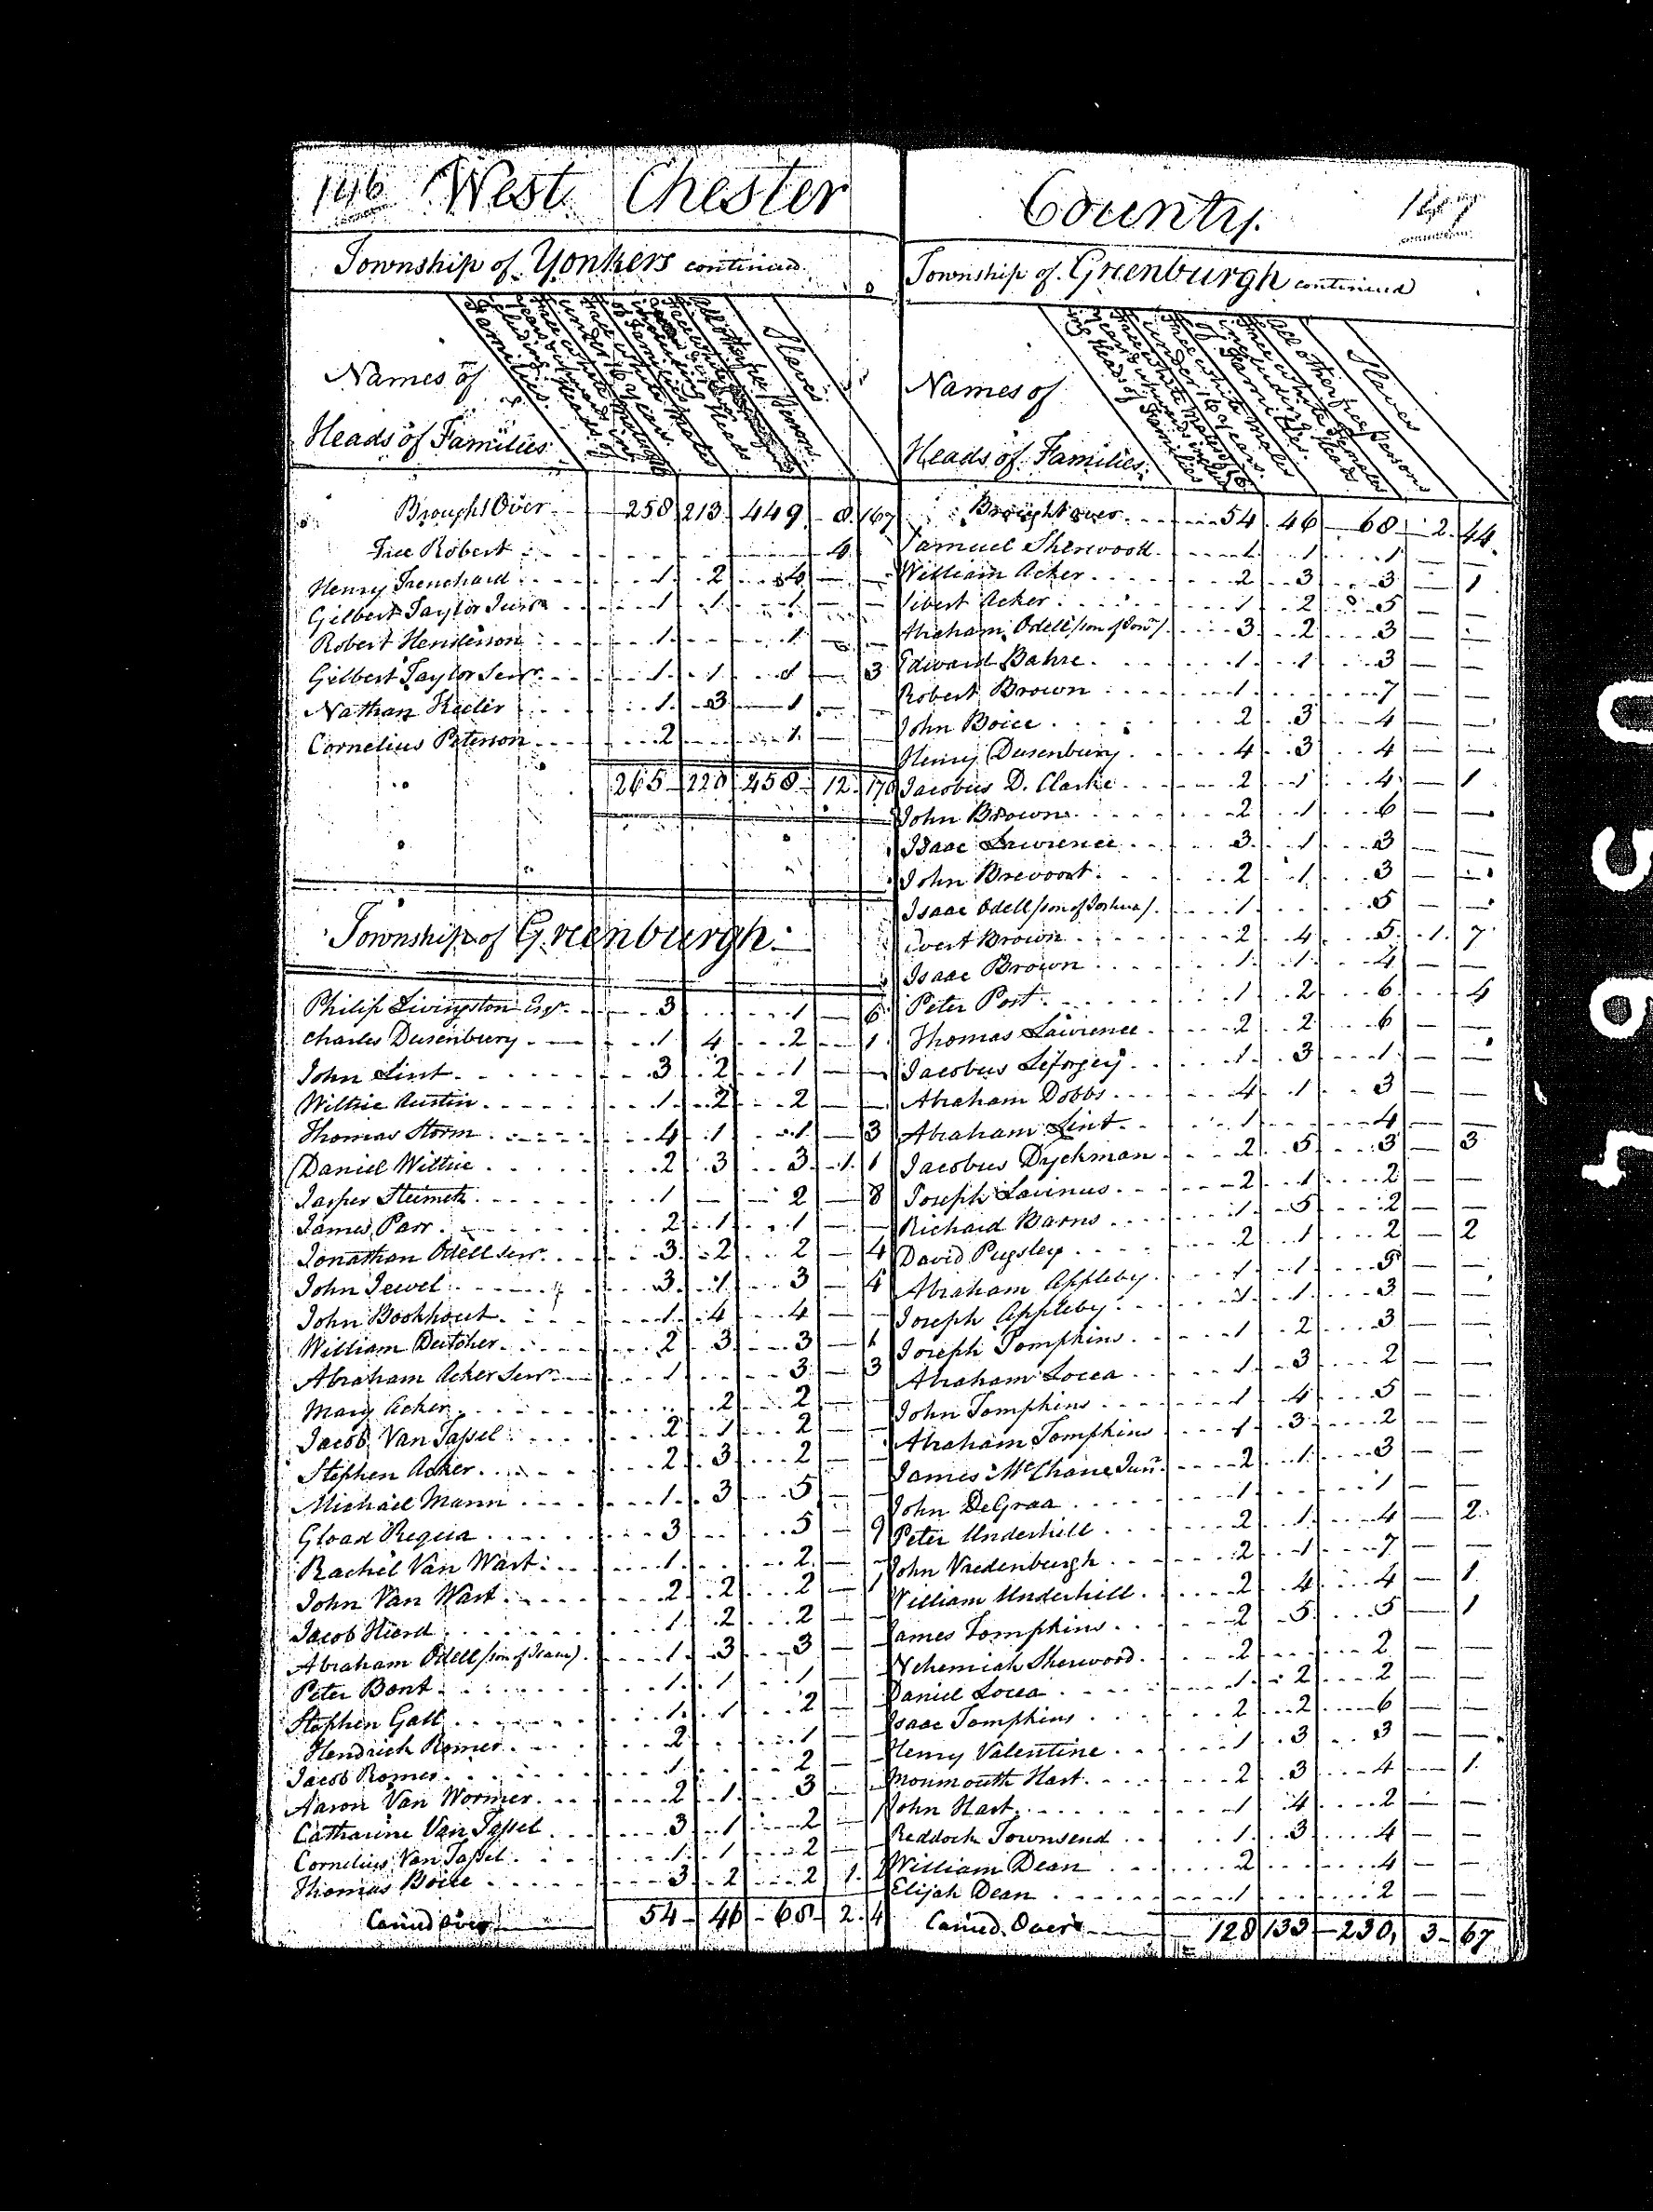 146 West Chester
Township of Yonkers continued
Names of
Heads of Families
Free white Males of 16 years & upwards including Heads of Families.
Free white Males under 16 years.
Free white Females including Heads of Families
All other free Persons
Slaves
Brought Over 258 213 449 8 167
Free Robert 4
Henry Trenchard 1 2 4 — —
Gilbert Taylor Junr 1 1 1 — —
Robert Henderson 1 1 — —
Gilbert Taylor Senr 1 1 1 — 3
Nathan Keeler 1 3 1 — —
Cornelius Peterson 2 1 — —
265 220 458 12 170
Township of Greenburgh
Philip Livingston Esqr. 3 1 — 6
Charles Dusenbury 1 4 2 — 1
John Lint 3 2 1 — —
Wiltsie Austin 1 2 2 — —
Thomas Storm 4 1 1 — 3
Daniel Wiltsie 2 3 3 1 1
Jasper Steimets 1 — 2 — 8
James Parr 2 1 1 — —
Jonathan Odell Senr. 3 2 2 — 4
John Jewel 3 1 3 — 4
John Bookhout 1 4 4 — —
William Dutcher 2 3 3 — 1
Abraham Acker Senr 1 3 — 3
Mary Acker 2 2 — —
Jacob Van Tassel 2 1 2 — —
Stephen Acker 2 3 2 — —
Michael Mann 1 3 5 — —
Gload Requa 3 5 — 9
Rachel Van Wart 1 2 — —
John Van Wart 2 2 2 — 1
Jacob Heard 1 2 2 — —
Abraham Odell (son of Isaac) 1 3 3 — —
Peter Bont 1 1 1 — —
Stephen Gall 1 1 2 — —
Hendrick Romer 2 1 — —
Jacob Romer 1 2 — —
Aaron Van Wormer 2 1 3 — —
Catharine Van Tassel 3 1 2 —
Cornelius Van Tassel 1 1 2 — —
Thomas Boice 3 2 2 1
Carried Over 54 46 68 2 4
County. 147
Township of Greenburgh continued
Names of
Heads of Families
Free white Males of 16 years & upwards including Heads of Families
Free white Males under 16 years.
Free white Females including Heads of Families.
All other free persons
Slaves
Brought over 54 46 68 2 44
Samuel Sherwood 1 1 1 — —
William Acker 2 3 3 — 1
Sibert Acker 1 2 5 — —
Abraham Odell (son of Jonn) 3 2 3 — —
Edward Bahre 1 1 3 — —
Robert Brown 1 7 — —
John Boice 2 3 4 — —
Henry Dusenbury 4 3 4 — —
Jacobus D. Clarke 2 1 4 — 1
John Brown 2 1 6 — —
Isaac Lawrence 3 1 3 — —
John Brevoort 2 1 3 — —
Isaac Odell (son of Joshua) 1 5 — —
Evert Brown 2 4 5 1 7
Isaac Brown 1 1 4 — —
Peter Post 1 2 6 4
Thomas Lawrence 2 2 6 — —
Jacobus Leforgey 1 3 1 — —
Abraham Dobbs 4 1 3 — —
Abraham Lint 1 4 — —
Jacobus Dyckman 2 5 3 — 3
Joseph Lavinus 2 1 2 — —
Richard Barns 1 5 2 — —
David Pugsley 2 1 2 — 2
Abraham Appleby 1 1 5 — —
Joseph Appleby 1 1 3 — —
Joseph Tompkins 1 2 3 — —
Abraham Locea 1 3 2 — —
John Tompkins 1 4 5 — —
Abraham Tompkins 1 3 2 — —
James McChane Junr. 2 1 3 — —
John DeGraa 1 1 — —
Peter Underhill 2 1 4 — 2
John Vredenburgh 2 1 7 — —
William Underhill 2 4 4 — 1
James Tompkins 2 5 5 — 1
Nehemiah Sherwood 2 2 — —
Daniel Locea 1 2 2 — —
Isaac Tompkins 2 2 6 — —
Henry Valentine 1 3 3 — —
Monmouth Hart 2 3 4 — 1
John Hart 1 4 2 — —
Reddock Townsend 1 3 4 — —
William Dean 2 4 — —
Elijah Dean 1 2 — —
Carried Over 128 133 230 3 67